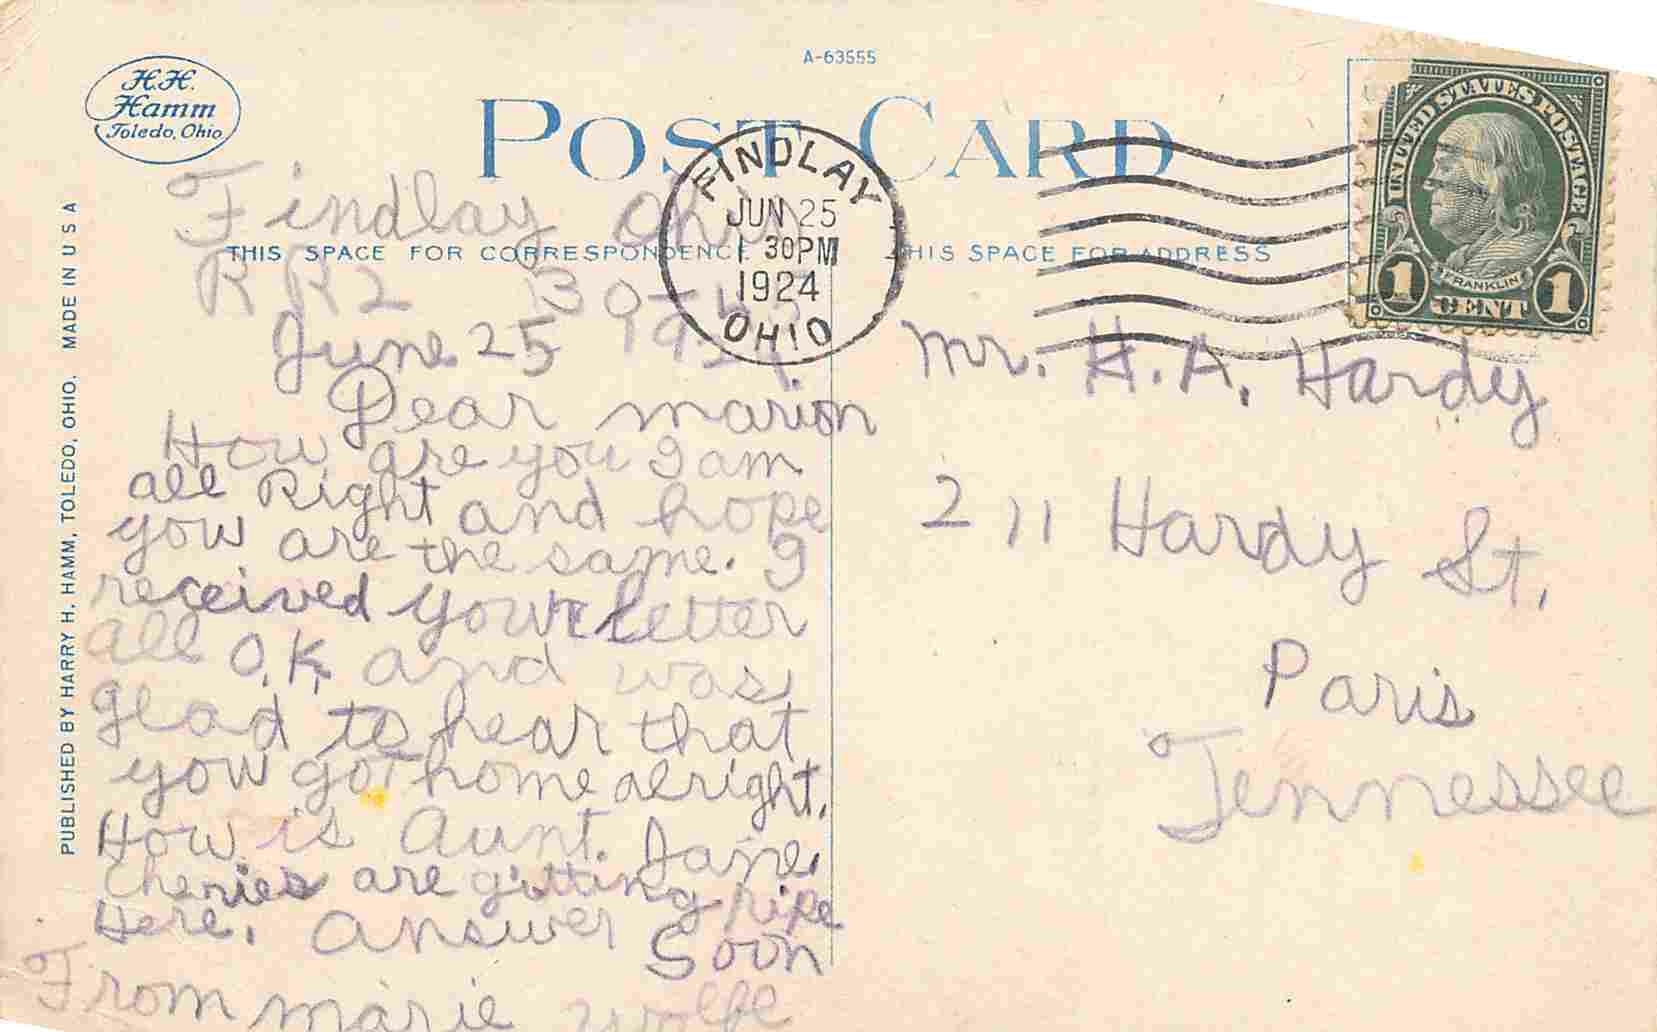 A-63555
H.H.
Hamm
Toledo, Ohio
POST CARD
FINDLAY
JUN 25
1 30PM
1924
OHIO
UNITED STATES POSTAGE
FRANKLIN
1 CENT 1
THIS SPACE FOR CORRESPONDENCE
THIS SPACE FOR ADDRESS
PUBLISHED BY HARRY H. HAMM, TOLEDO, OHIO. MADE IN U S A
Findlay Ohio
RR2
June 25 1924.
Dear marion
How are you I am
all Right and hope
you are the same. I
received your letter
all O.K, and was
glad to hear that
you got home alright.
How is Aunt. Jane.
cheries are gitting ripe
Here. Answer
Soon
From marie wolfe
Mr. H. A. Hardy
211 Hardy St.
Paris
Tennessee